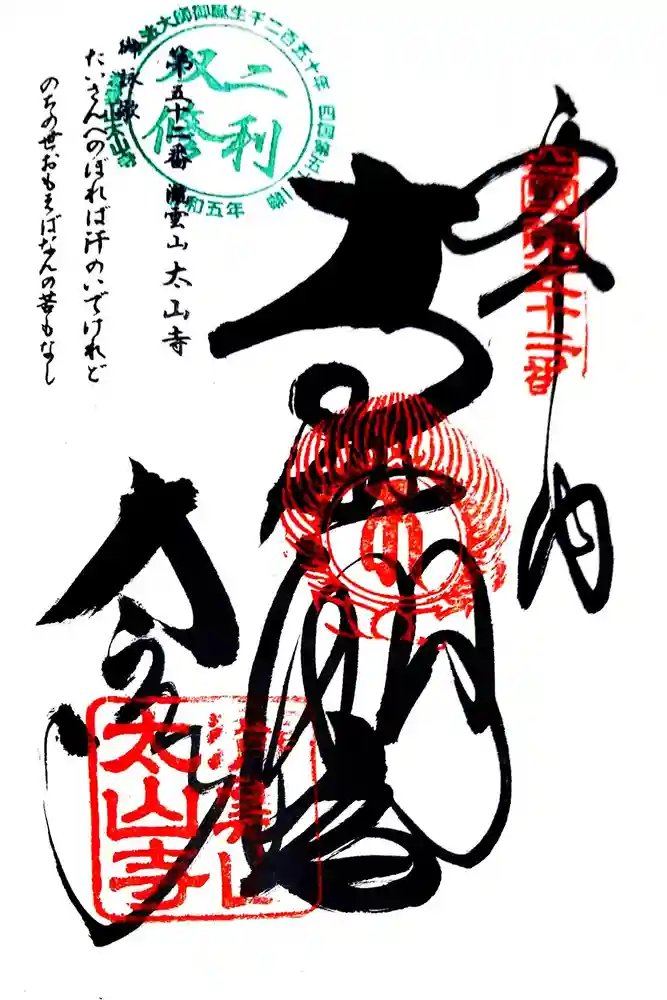 奉納
四国第五十二番
太山寺
瀧雲山
太山寺
二利
双修
弘法大師御誕生千二百五十年
令和五年
第五十二番 瀧雲山 太山寺
御詠歌
たいさんへのぼれば汗のいでけれど
のちの世おもえばなんの苦もなし